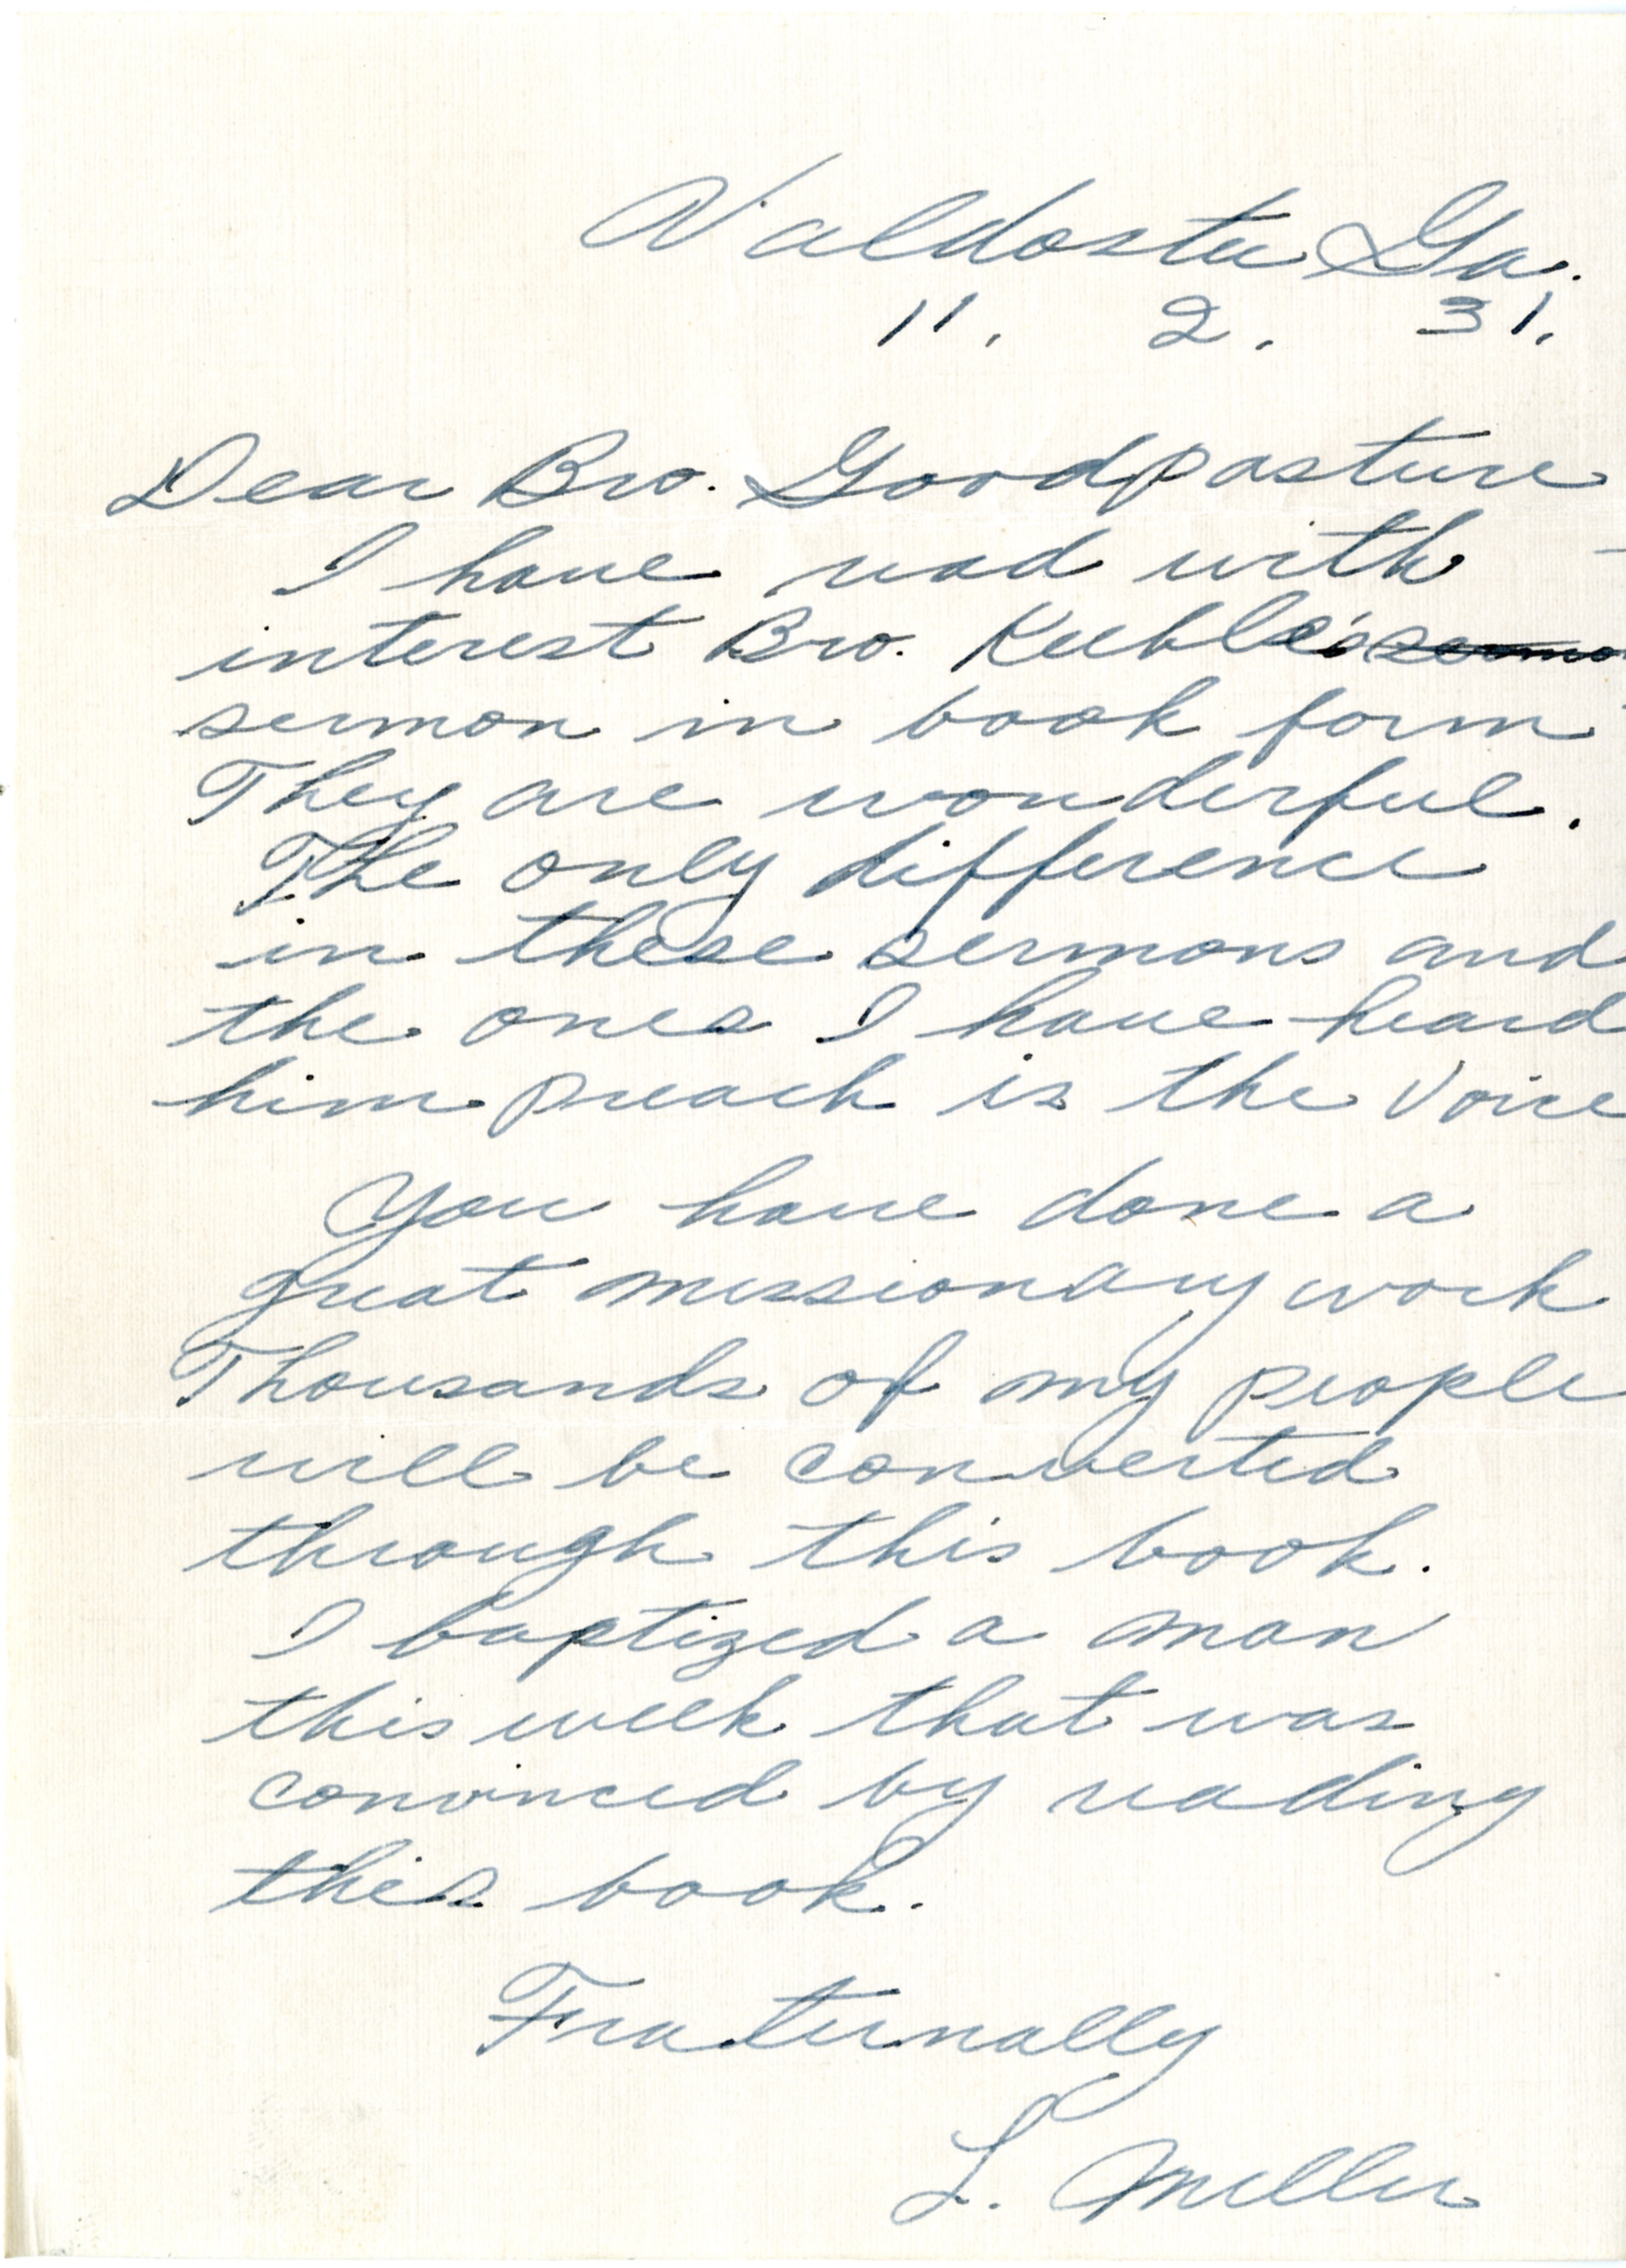 Valdosta Ga.
11. 2. 31.
Dear Bro. Goodpasture
I have read with
interest Bro. Keeble's sermo
sermon in book form
They are wonderful.
The only difference
in these sermons and
the ones I have heard
him preach is the Voice
You have done a
great missionary work
Thousands of my people
will be converted
through this book.
I baptized a man
this week that was
convinced by reading
this book.
Fraternally
L. Miller